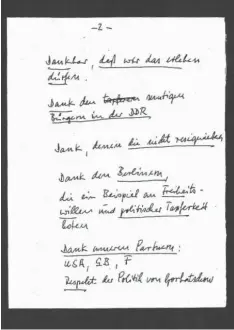 - 2 -
Dankbar, daß wir das erleben
dürfen.
Dank den tapferen mutigen
Bürgern in der DDR,
Dank, denen die nicht resignierten
Dank den Berlinern,
die ein Beispiel an Freiheits-
willen und politischer Tapferkeit
boten
Dank unseren Partnern:
USA, GB, F
Respekt der Politik von Gorbatschow